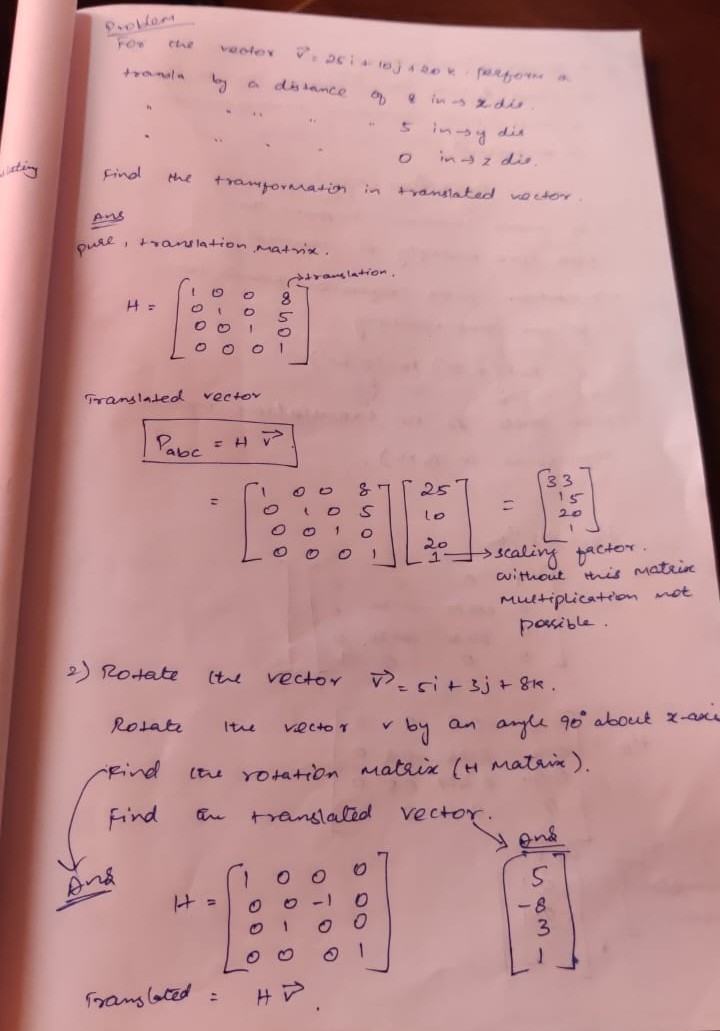 Problem
For the vector V⃗ = 25i + 10j + 20k. perform a
transla by a distance of 8 in → x dir.
" " " " 5 in → y dir
" " " 0 in → z dir.
Find the transformation in translated vector.
Ans
pure, translation matrix.
→ translation.
H = [1 0 0 8
0 1 0 5
0 0 1 0
0 0 0 1]
Translated vector
P_abc = H V⃗
= [1 0 0 8 [25 = [33
0 1 0 5 10 15
0 0 1 0 20 20
0 0 0 1] 1] 1]
→ scaling factor.
without this matrix
multiplication not
possible.
2) Rotate the vector V⃗ = 5i + 3j + 8k.
Rotate the vector v by an angle 90° about x-axi
Find the rotation matrix (H matrix).
Find the translated vector.
Ans
H = [1 0 0 0
0 0 -1 0
0 1 0 0
0 0 0 1]
Ans
[5
-8
3
1]
Translated = H V⃗.